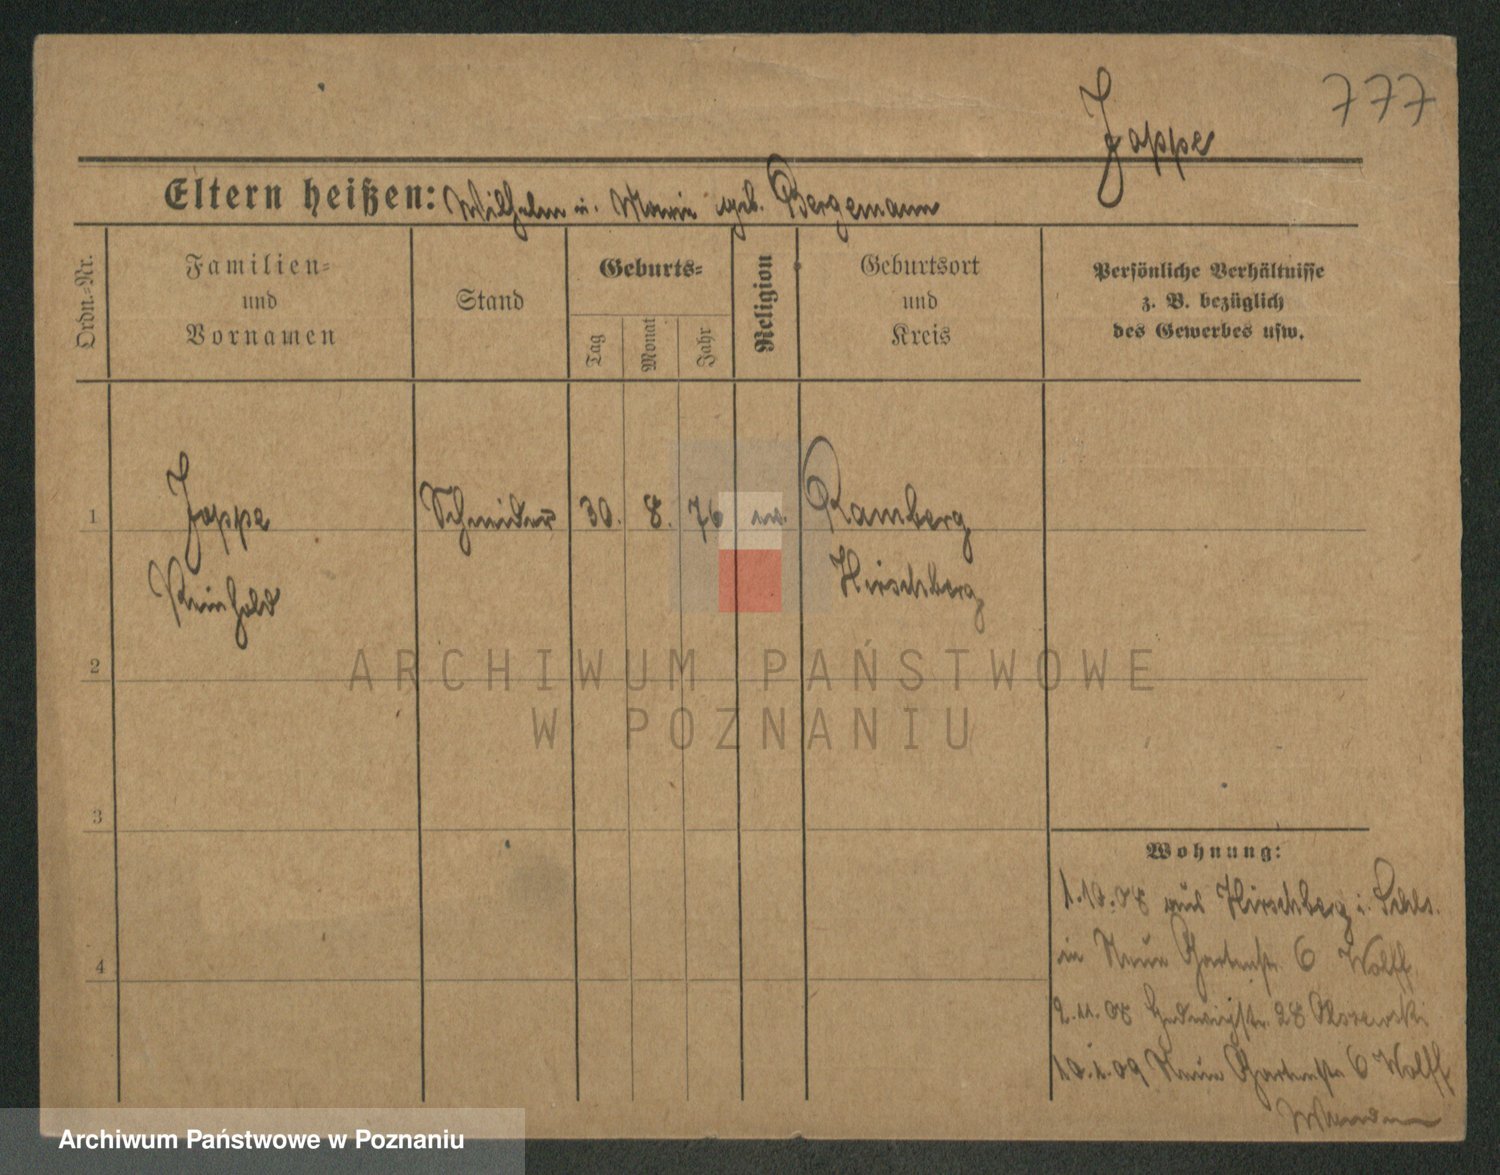 777
Jappe
Eltern heißen: Wilhelm u. Marie geb. Bergemann
Ordn.=Nr.
Familien=
und
Vornamen
Stand
Geburts=
Tag
Monat
Jahr
Religion
Geburtsort
und
Kreis
Persönliche Verhältnisse
z. B. bezüglich
des Gewerbes usw.
1 Jappe Schneider 30. 8. 76 Ramberg
Reinhold Hirschberg
2
ARCHIWUM PAŃSTWOWE
W POZNANIU
3
Wohnung:
1.10.08 aus Hirschberg i. Schls.
in Neue Gartenstr. 6 Wolff
2.11.08 Hedwigstr. 28
4
10.1.09 Neue Gartenstr 6 Wolff
Archiwum Państwowe w Poznaniu